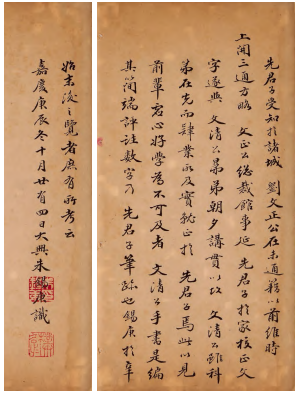 先君子受知於諸城 劉文正公在未通籍以前維時
上開三通方略 文正公總裁館事延 先君子於家校正文
字遂與 文清公弟朝夕講貫以故 文清公雖科
弟在先而肄業所及實就正於 先君子焉此以見
前輩宏心好學為不可及者 文清公手書是編
其簡端評注數字乃 先君子筆跡也錫庚於辛
始末後之覽者庶有所考云
嘉慶庚辰冬十月廿有四日大興朱錫庚識